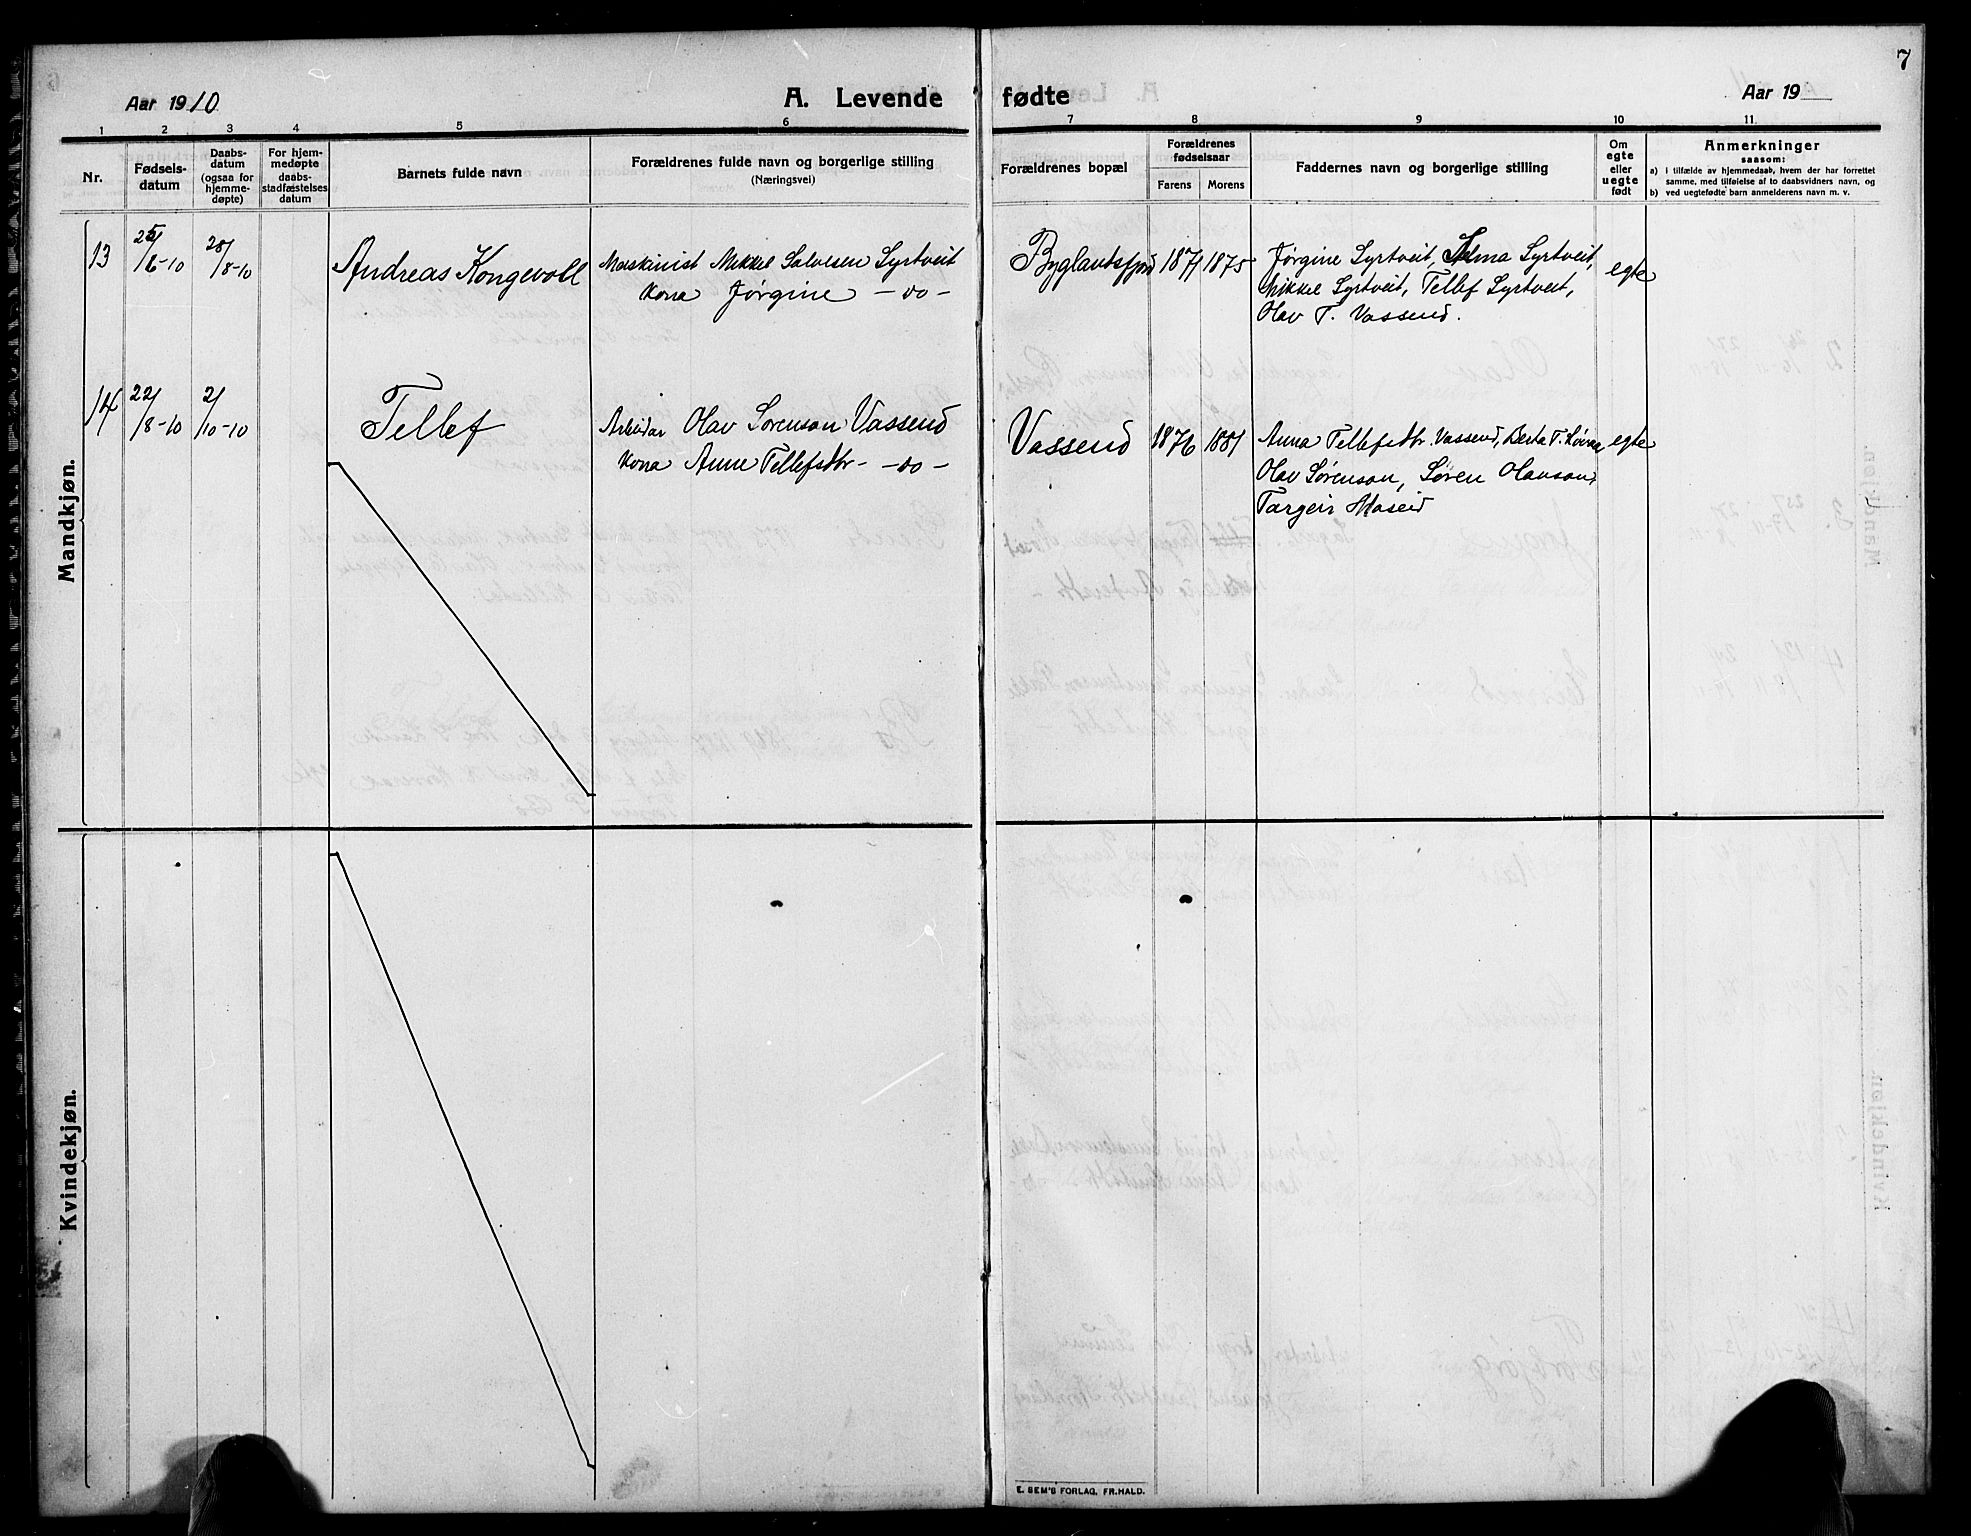 7
Aar 1910
A. Levende fødte
Aar 19
1 2 3 4 5 6 7 8 9 10 11
Nr.
Fødsels-
datum
Daabs-
datum
(ogsaa for
hjemme-
døpte)
For hjem-
medøpte
daabs-
stadfæstelses
datum
Barnets fulde navn
Forældrenes fulde navn og borgerlige stilling
(Næringsvei)
Forældrenes bopæl
Forældrenes
fødselsaar
Farens Morens
Faddernes navn og borgerlige stilling
Om
egte
eller
uegte
født
Anmerkninger
saasom:
a) i tilfælde av hjemmedaab, hvem der har forrettet
samme, med tilføielse av to daabsvidners navn, og
b) ved uegtefødte barn anmelderens navn m. v.
Mandkjøn.
13 25/6-10 28/8-10 Andreas Kongevoll
Maskinist Mikkel Salvesen Syrtveit
Kona Jørgine -do-
Byglandsfjord 1871 1875
Jørgine Syrtveit, Selma Syrtveit,
Mikkel Syrtveit, Tellef Syrtveit,
Olav T. Vassend.
egte
14 22/8-10 2/10-10 Tellef
Arbeidar Olav Sørenson Vassend
Kona Anne Tellefsdtr -do-
Vassend 1876 1881
Anna Tellefsdtr. Vassend, Berta T.
Olav Sørenson, Søren Olavson,
Targeir Moseid
egte
Kvindekjøn.
E. SEM'S FORLAG, FR.HALD.